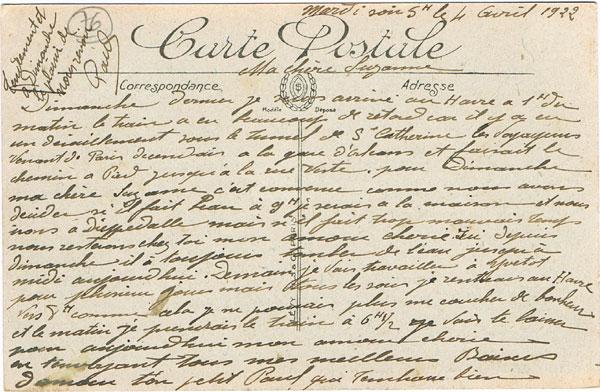 Mardi soir 5H le 4 Avril 1922
76
Carte Postale
Ma chère Suzanne
Correspondance
Adresse
Modèle Déposé
Dimanche dernier je suis arrivé au Havre à 1H du
matin le train a eu beaucoup de retard car il y a eu
un deraillement sous le tunnel de Ste Catherine les voyageurs
venant de Paris a la gare d'orleans et faisait le
chemin a Pied jusqu'à la rue Verte. pour Dimanche
ma chère Suzanne c'est convenue comme nous avons
decider si il fait beau à 9H je serais a la maison et nous
irons a mais si il fait trop mauvais temps
nous resterons chez toi mon amour cherie ici Depuis
dimanche il à toujours tomber de l'eau jusqu'à
midi aujourd'hui. Demain je vais travailler à Yvetot
pour plusieur jours mais tous les soirs je rentrerais au Havre
vers 8H comme cela je ne pourrais plus me coucher de bonheur
et le matin je prenerais le train à 6H1/2 je vais te laisser
pour aujourd'hui mon amour cherie
en t'envoyant tous mes meilleurs Baisers
d'amour ton petit Paul qui t'embrasse bien